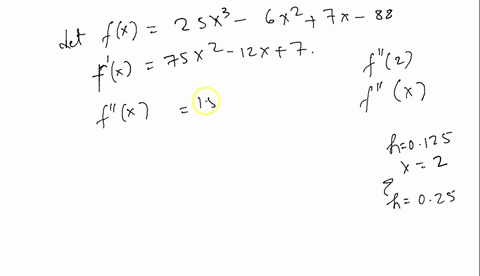 let f(x) = 25x³ - 6x² + 7x - 88
f'(x) = 75x² - 12x + 7.
f''(x) = 15
f''(2)
f''(x)
h=0.125
x=2
h=0.25